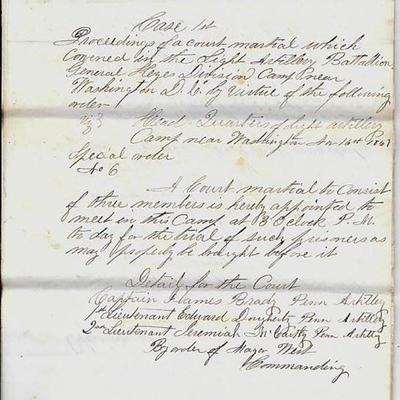 Case 1st
Proceedings of a court martial which
convened in the Light Artillery Battallion
General Keyes Division Camp near
Washington D.C. by virtue of the following
order
viz Head Quarters of light artillery
Camp near Washington Nov 16th 1861
Special order
No 6
A Court martial to consist
of three members is hereby appointed to
meet in this Camp at 3 Oclock P.M.
to day for the trial of such prisoners as
may properly be brought before it
Detail for the Court
Captain James Brady Penn Artillery
1st Lieutenant Edward Dougherty Penn Artillery
2nd Lieutenant Jeremiah McCarthy Penn Artillery
By order of Major West
Commanding